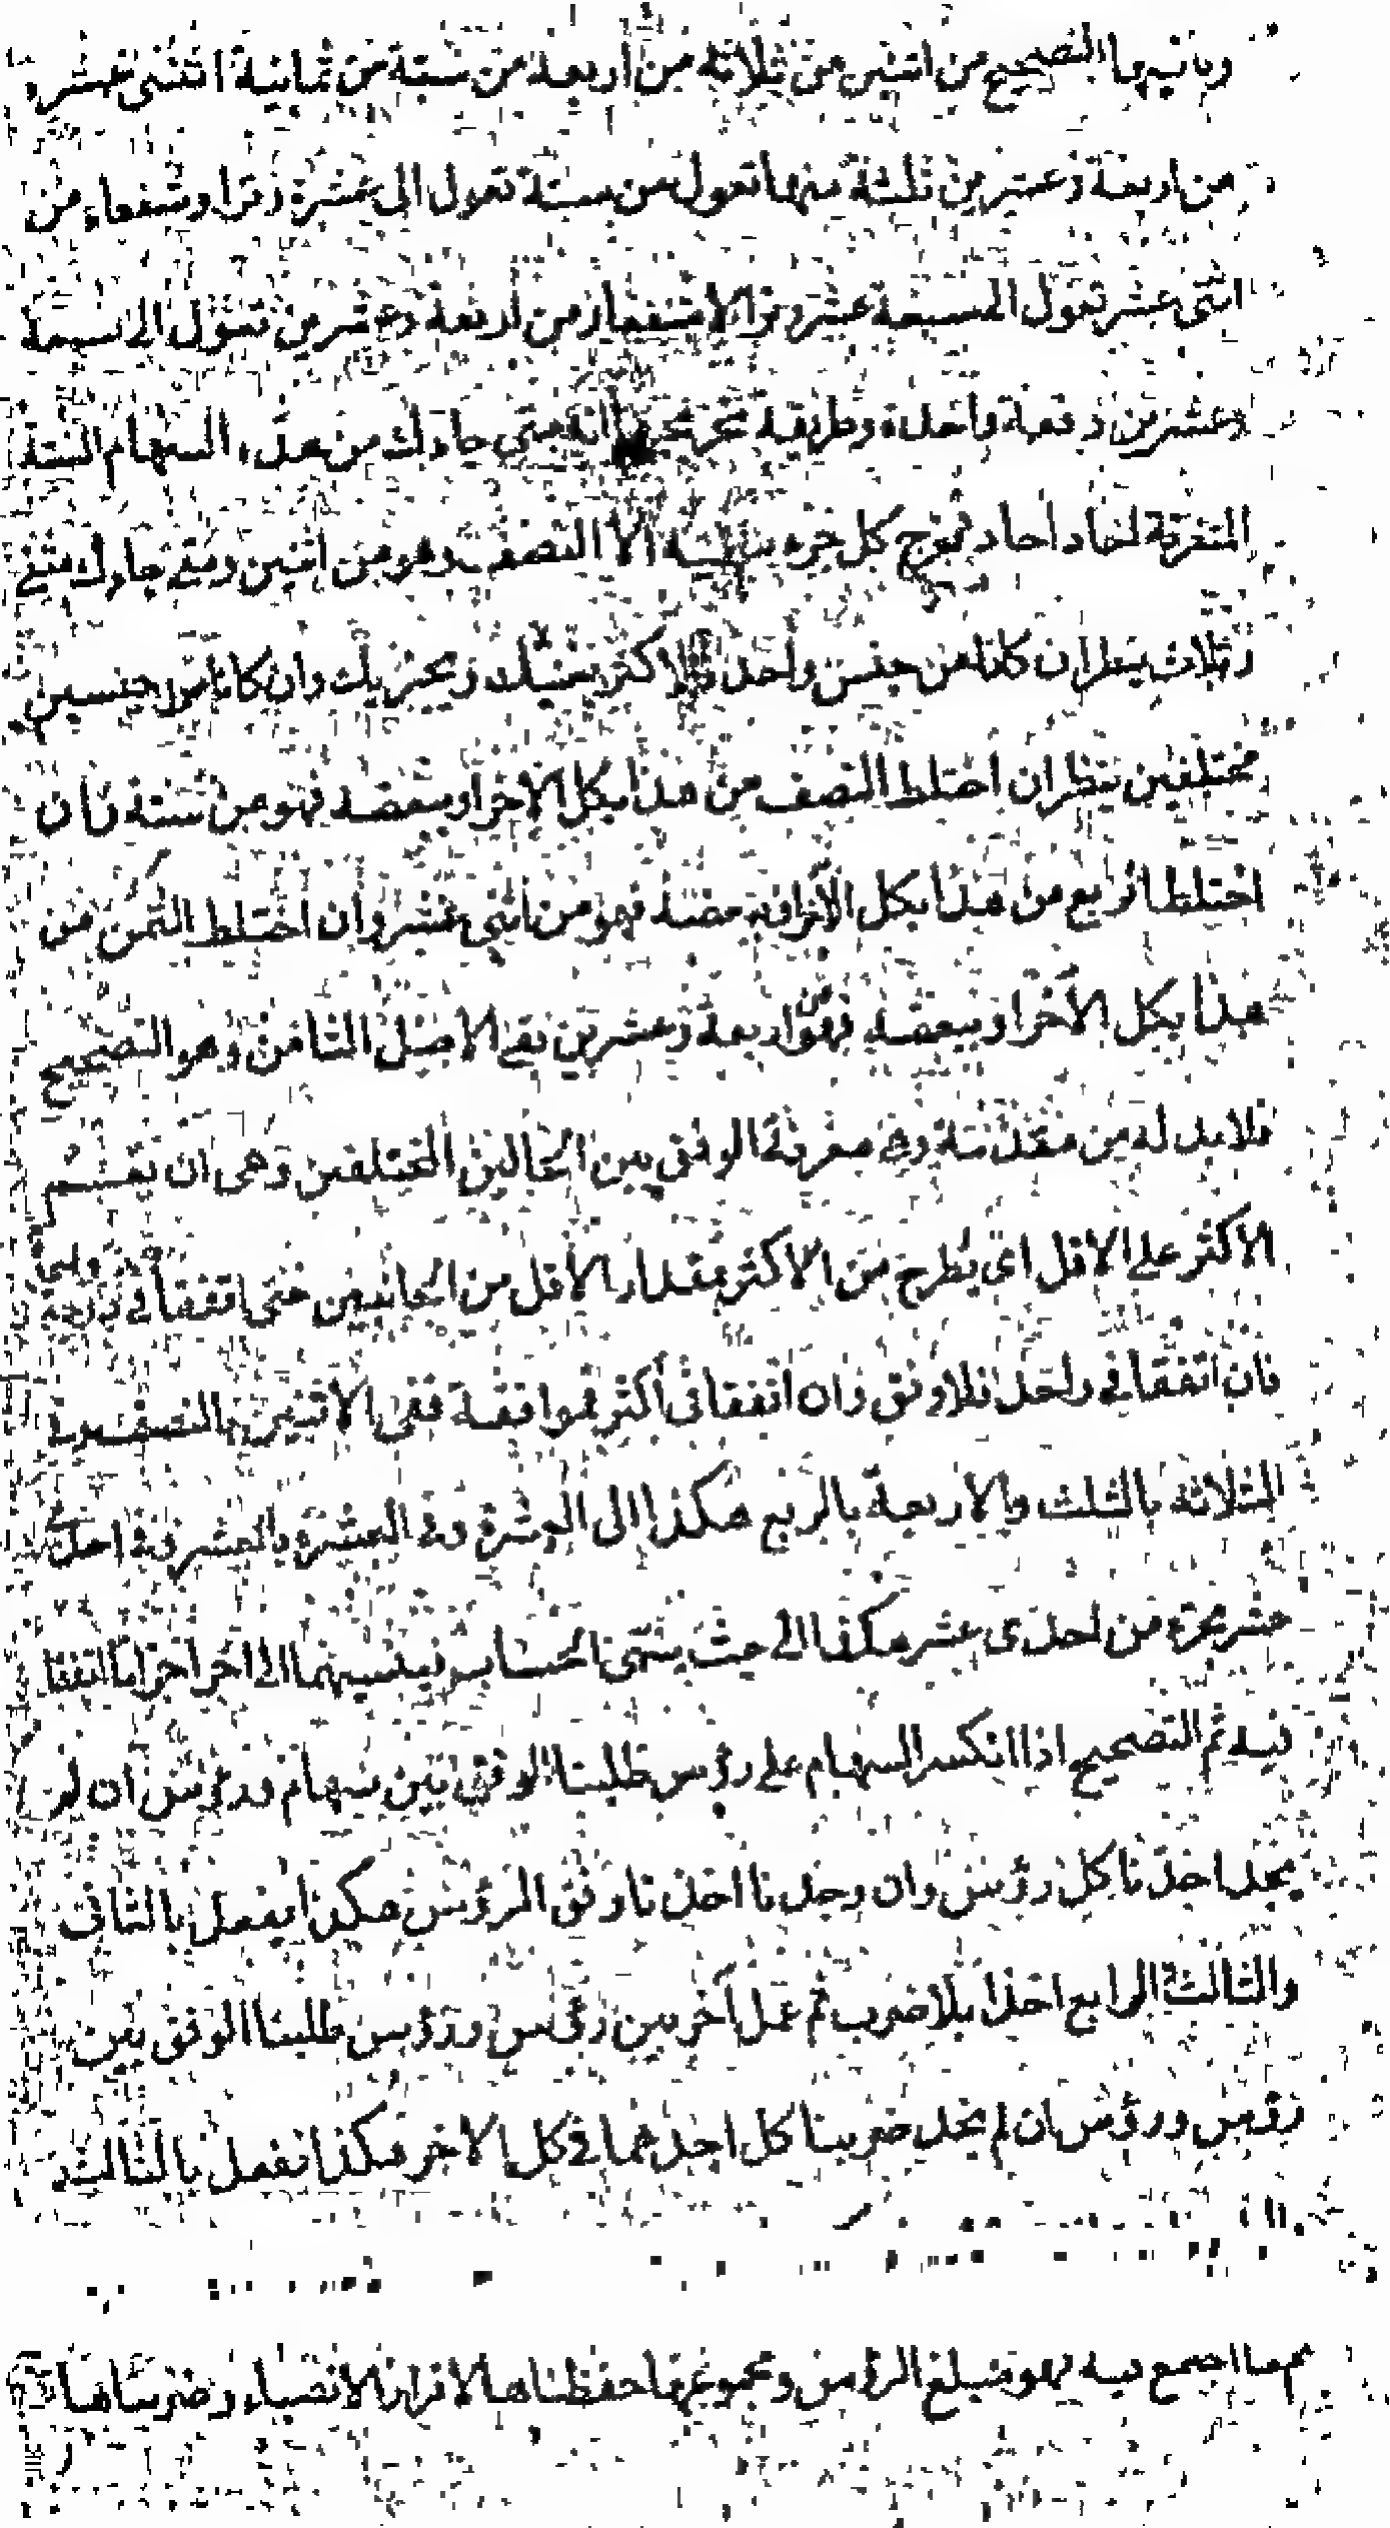 وثانيها التصحيح من اثنين من ثلاثة من أربعة من ستة من ثمانية اثنى عشر
من اربعة وعشرين ثلثة منها تعول من ستة تعول الى عشرة وترا وشفعا من
اثنى عشر تعول الى سبعة عشر وترا لا شفعا من أربعة وعشرين تعول الى سبعة
وعشرين دفعة واحدة وطريقة انه متى جاءك من هذه السهام الستة
المتفرقة احاد احاد فمخرج كل جزء الا النصف وهو من اثنين ومتى جاءك مثنى
وثلاث ينظر ان كانا من جنس واحد فالاكثر يجزيك وان كانا من جنسين
مختلفين ينظر ان اختلط النصف من هذا بكل الآخر او ببعضه فهو من ستة فان
اختلط الربع من هذا بكل الآخر او ببعضه فهو من اثنى عشر وان اختلط الثمن من
هذا بكل الآخر او ببعضه فهو من اربعة وعشرين بقى الاصل الثامن وهو التصحيح
فلا بد له من مقدمة وهى معرفة الوفق بين الحالين المختلفين وهى ان تقسم
الاكثر على الاقل اى يطرح من الاكثر مقدار الاقل من الجانبين حتى اتفقا فى درجة
فان اتفقا فى واحد فلا وفق وان اتفقا فى أكثر فموافقة ففى الاثنين بالنصف وفى
الثلاثة بالثلث والاربعة بالربع هكذا الى العشرة وفى العشرة بالعشر وفى احد
عشر بجزء من احدى عشر هكذا الى حيث ينتهى الحساب
فيه ثم التصحيح اذا انكسر السهام على رؤس طلبنا الوفق بين سهام ورؤس ان لم
نجد اخذنا كل رؤس وان وجدنا اخذنا وفق الرؤس هكذا يفعل بالثانى
والثالث الرابع اخذا بلا ضرب ثم عمل آخر بين رؤس ورؤس طلبنا الوفق بين
رؤس ورؤس ان لم نجد ضربنا كل احدهما فى كل الاخر هكذا نفعل بالثالث
ثم ما اجتمع فيه فهو مبلغ الرؤس ومجموعها حفظناها لافراز الانصباء وضربناها